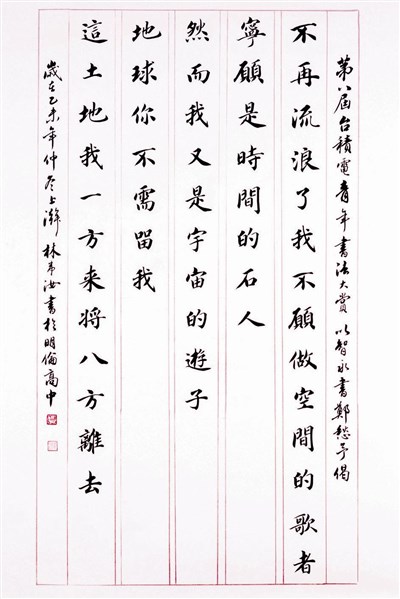 第八屆台積電青年書法大賞 以智永書鄭愁予偈
不再流浪了我不願做空間的歌者
寧願是時間的石人
然而我又是宇宙的遊子
地球你不需留我
這土地我一方来將八方離去
歲在乙未年仲上澣 林汝書於明倫高中